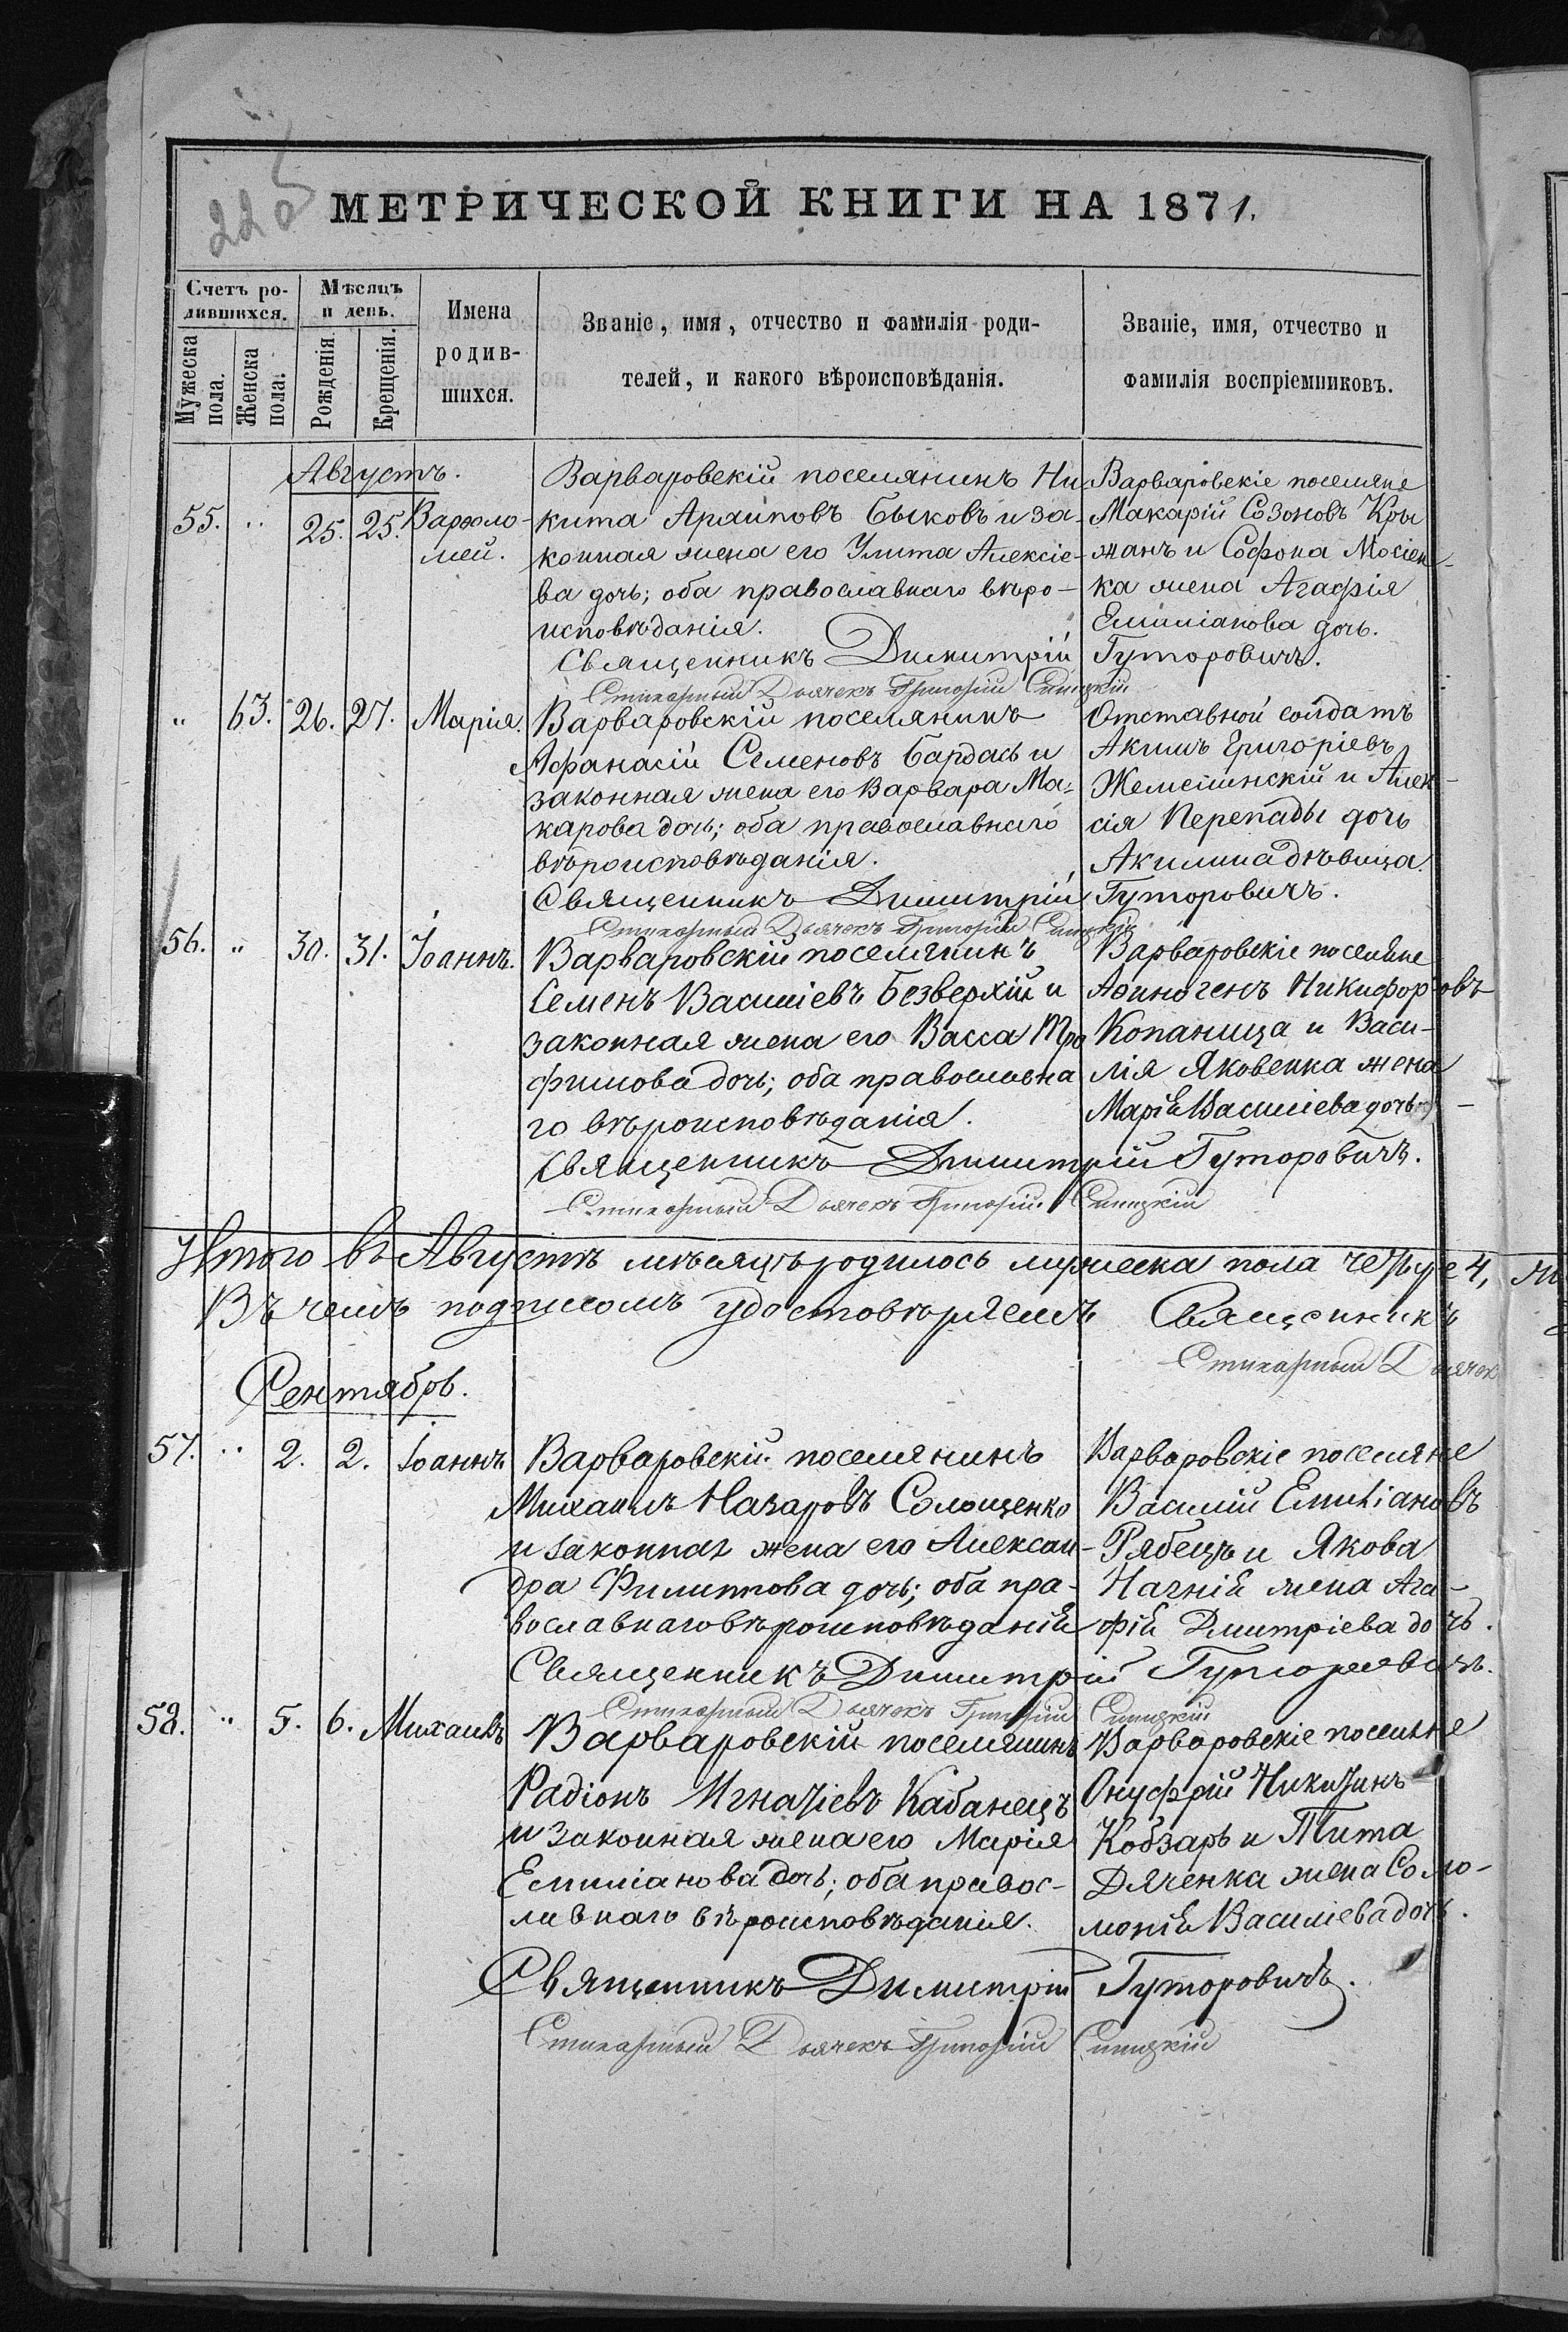 225
МЕТРИЧЕСКОЙ КНИГИ НА 1871.
Счетъ ро-
дившихся.
Мѣсяцъ
и день.
Имена
родив-
шихся.
Званіе, имя, отчество и фамилія роди-
телей, и какого вѣроисповѣданія.
Званіе, имя, отчество и
фамилія воспріемниковъ.
Мужеска
пола.
Женска
пола.
Рожденія.
Крещенія.
Августъ.
55. " 25. 25. Варѳоло-
мей.
Варваровскій поселянинъ Ни-
кита Архиповъ Быковъ и за-
конная жена его Улита Алексіе-
ва дочь; оба православнаго вѣро-
исповѣданія.
Варваровскіе поселяне
Макарій Созоновъ Кры
жанъ и Софона Мосіен-
ка жена Агафія
Емиліанова дочь.
Священникъ Димитрій Гуторовичъ.
Стихарный Дьячекъ Григорій Синицкій
" 63. 26. 27. Марія.
Варваровскій поселянинъ
Афанасій Семеновъ Бардась и
законная жена его Варвара Ма-
карова дочь; оба православнаго
вѣроисповѣданія.
Отставной солдатъ
Акимъ Григоріевъ
и Алек-
сія Перепады дочь
Акилина дѣвица.
Священникъ Димитрій Гуторовичъ.
Стихарный Дьячекъ Григорій Синицкій
56. " 30. 31. Іоаннъ.
Варваровскій поселянинъ
Семенъ Василіевъ Безверхій и
законная жена его Васса Тро
фимова дочь; оба православна
го вѣроисповѣданія.
Варваровскіе поселяне
Афиногенъ Никифоровъ
Копаница и Васи-
лія Яковенка жена
Марія Василіева дочь
Священникъ Димитрій Гуторовичъ.
Стихарный Дьячекъ Григорій Синицкій
Итого въ Августѣ мѣсяцѣ родилось мужеска пола четыре 4,
Въ чемъ подписомъ удостовѣряемъ Священникъ
Стихарный Дьячек
Сентябрь.
57. " 2. 2. Іоаннъ
Варваровскій поселянинъ
Михаилъ Назаровъ Солощенко
и законная жена его Алексан-
дра Филиппова дочь; оба пра-
вославнаго вѣроисповѣданія
Варваровскіе поселяне
Василій Емиліановъ
Рябецъ и Якова
жена Ага-
фія Дмитріева дочь.
Священникъ Димитрій Гуторовичъ.
Стихарный Дьячекъ Григорій Синицкій
58. " 5. 6. Михаилъ
Варваровскій поселянинъ
Радіонъ Игнатіевъ Кабанецъ
и законная жена его Марія
Емиліанова дочь; оба правос-
лавнаго вѣроисповѣданія.
Варваровскіе поселяне
Онуфрій Никитинъ
Кобзарь и Тита
Дяченка жена Соло-
монія Василіева дочь.
Священникъ Димитрій Гуторовичъ.
Стихарный Дьячекъ Григорій Синицкій